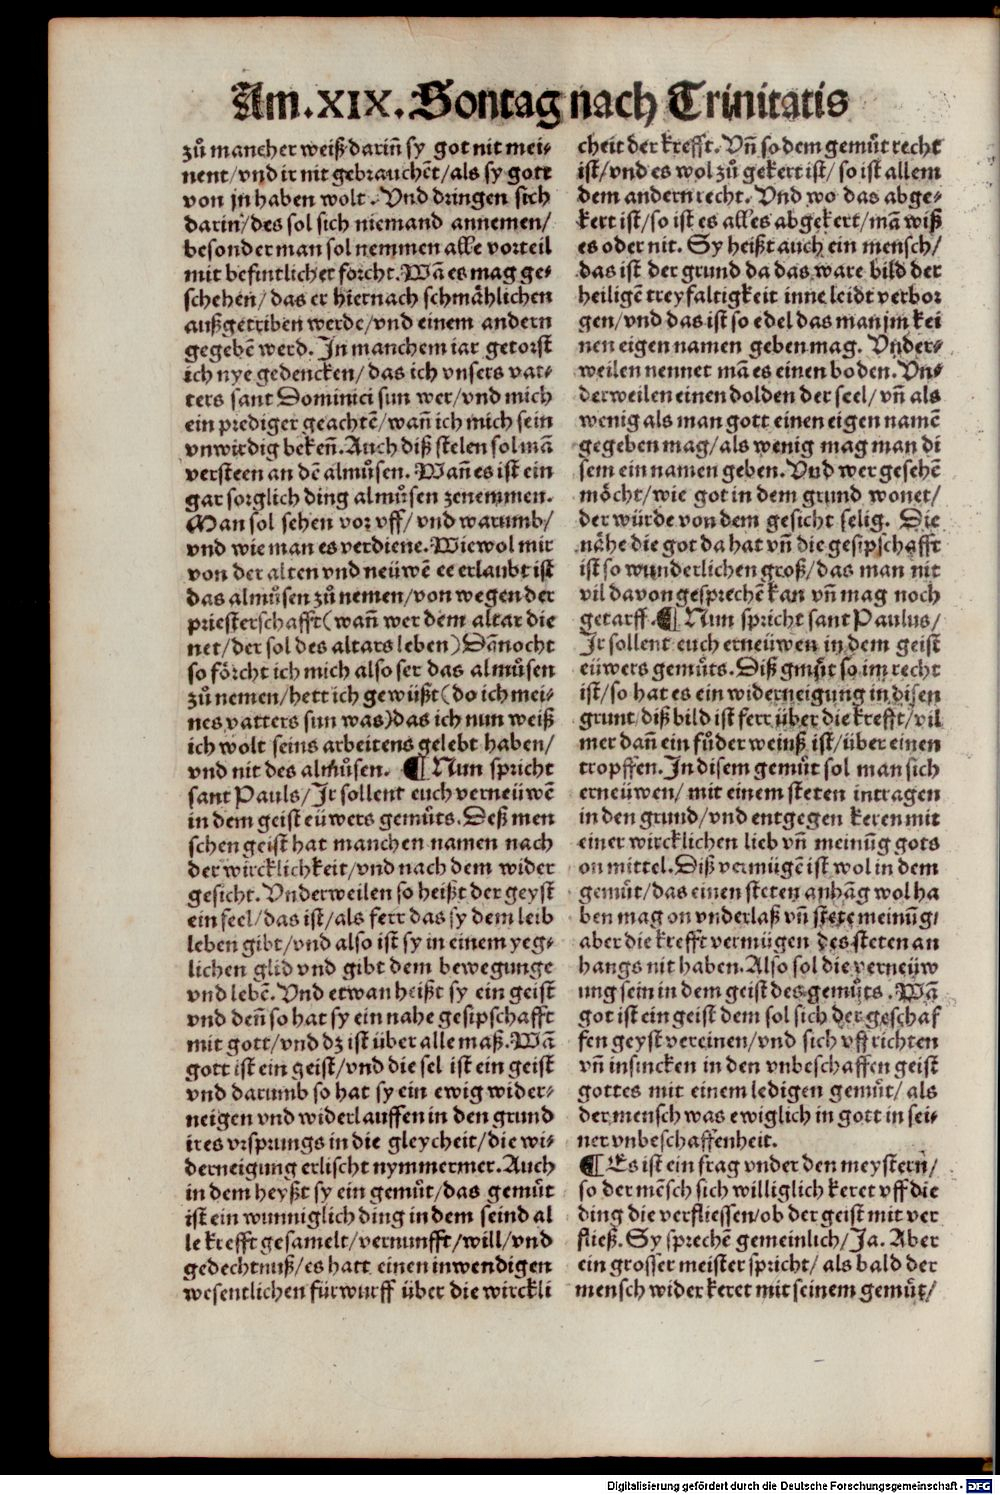 Am.XIX.Sontag nach Trinitatis
zů mancher weiß darin̄ sy got nit mei⸗
nent/vnd ir nit gebrauchēt/als sy gott
von jn haben wolt. Vnd dringen sich
darin/des sol sich niemand annemen/
besonder man sol nemmen alle vorteil
mit befintlicher forcht.Wā es mag ge⸗
schehen/das er hiernach schmåhlichen
außgetriben werde/vnd einem andern
gegebē werd. In manchem iar getorst
ich nye gedencken/das ich vnsers vat⸗
ters sant Dominici sun wer/vnd mich
ein prediger geachtē/wan̄ ich mich sein
vnwirdig beken̄.Auch diß stelen sol mā
versteen an dē almůsen. Wan̄ es ist ein
gar sorglich ding almůsen zenemmen.
Man sol sehen vor vff/vnd warumb/
vnd wie man es verdiene.Wiewol mir
von der alten vnd neüwē ee erlaubt ist
das almůsen zů nemen/von wegen der
priesterschafft(wan̄ wer dem altar die
net/der sol des altars leben)Dānocht
so fôrcht ich mich also ser das almůsen
zů nemen/hett ich gewüßt(do ich mei⸗
nes vatters sun was)das ich nun weiß
ich wolt seins arbeitens gelebt haben/
vnd nit des almůsen. ¶ Nun spricht
sant Pauls/Ir sollent euch verneüwē
in dem geist eüwers gemůts.Deß men
schen geist hat manchen namen nach
der wircklichkeit/vnd nach dem wider
gesicht. Vnderweilen so heißt der geyst
ein seel/das ist/als ferr das sy dem leib
leben gibt/vnd also ist sy in einem yeg⸗
lichen glid vnd gibt dem bewegunge
vnd lebē.Vnd etwan heißt sy ein geist
vnd den̄ so hat sy ein nahe gesipschafft
mit gott/vnd dz ist über alle maß.Wā
gott ist ein geist/vnd die sel ist ein geist
vnd darumb so hat sy ein ewig wider⸗
neigen vnd widerlauffen in den grund
ires vrsprungs in die gleycheit/die wi⸗
derneigung erlischt nymmermer.Auch
in dem heyßt sy ein gemůt/das gemůt
ist ein wunniglich ding in dem seind al
le krefft gesamelt/vernunfft/will/vnd
gedechtnuß/es hatt einen inwendigen
wesentlichen fürwurff über die wirckli
cheit der krefft. Vn̄ so dem gemůt recht
ist/vnd es wol zů gekert ist/so ist allem
dem andern recht. Vnd wo das abge⸗
kert ist/so ist es alles abgekert/mā wiß
es oder nit. Sy heißt auch ein mensch/
das ist der grund da das ware bild der
heiligē treyfaltigkeit inne leidt verbor
gen/vnd das ist so edel das man jm kei
nen eigen namen geben mag. Vnder⸗
weilen nennet mā es einen boden. Vn⸗
derweilen einen dolden der seel/vn̄ als
wenig als man gott einen eigen namē
gegeben mag/als wenig mag man di
sem ein namen geben. Vnd wer gesehē
môcht/wie got in dem grund wonet/
der würde von dem gesicht selig. Die
nåhe die got da hat vn̄ die gesipschafft
ist so wunderlichen groß/das man nit
vil davon gesprechē kan vn̄ mag noch
getarff.¶ Nun spricht sant Paulus/
Ir sollent euch erneüwen in dem geist
eüwers gemůts.Diß gmůt so im recht
ist/so hat es ein widerneigung in disen
grunt/diß bild ist ferr über die krefft/vil
mer dan̄ ein fůder weinß ist/über einen
tropffen.In disem gemůt sol man sich
erneüwen/mit einem steten intragen
in den grund/vnd entgegen keren mit
einer wircklichen lieb vn̄ meinūg gots
on mittel.Diß vermügē ist wol in dem
gemůt/das einen steten anhāg wol ha
ben mag on vnderlaß vn̄ stete meinūg/
aber die krefft vermügen des steten an
hangs nit haben.Also sol die verneüw
ung sein in dem geist des gemůts.Wā
got ist ein geist dem sol sich der geschaf
fen geyst vereinen/vnd sich vff richten
vn̄ insincken in den vnbeschaffen geist
gottes mit einem ledigen gemůt/als
der mensch was ewiglich in gott in sei⸗
ner vnbeschaffenheit.
¶ Es ist ein frag vnder den meystern/
so der mēsch sich williglich keret vff die
ding die verfliessen/ob der geist mit ver
fließ. Sy sprechē gemeinlich/Ja. Aber
ein grosser meister spricht/als bald der
mensch wider keret mit seinem gemůt/
Digitalisierung gefördert durch die Deutsche Forschungsgemeinschaft - DFG